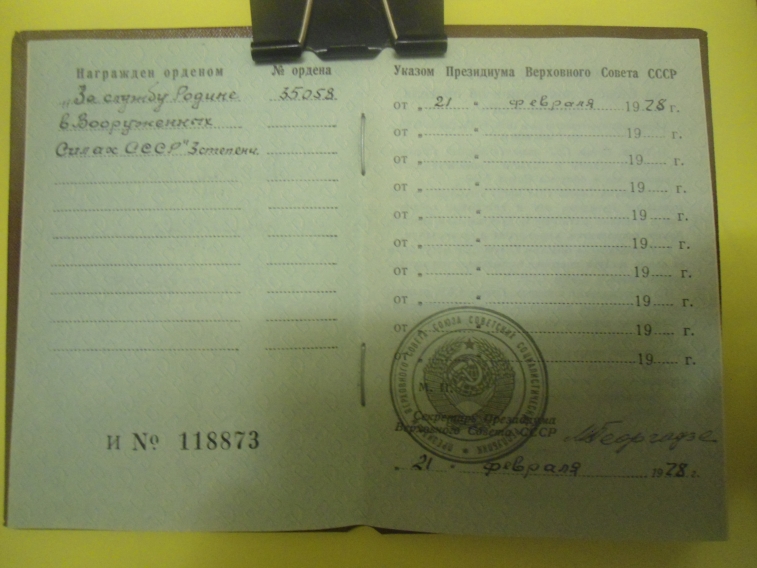 Награжден орденом
№ ордена
„За службу Родине
35058
в Вооруженных
Силах СССР" 3 степени
И № 118873
Указом Президиума Верховного Совета СССР
от „ 21 " февраля 1978 г.
от „ " 19 г.
от „ " 19 г.
от „ " 19 г.
от „ " 19 г.
от „ " 19 г.
от „ " 19 г.
от „ " 19 г.
от „ " 19 г.
от „ " 19 г.
М. П.
Секретарь Президиума
Верховного Совета СССР
М. Георгадзе
„ 21 " февраля 1978 г.